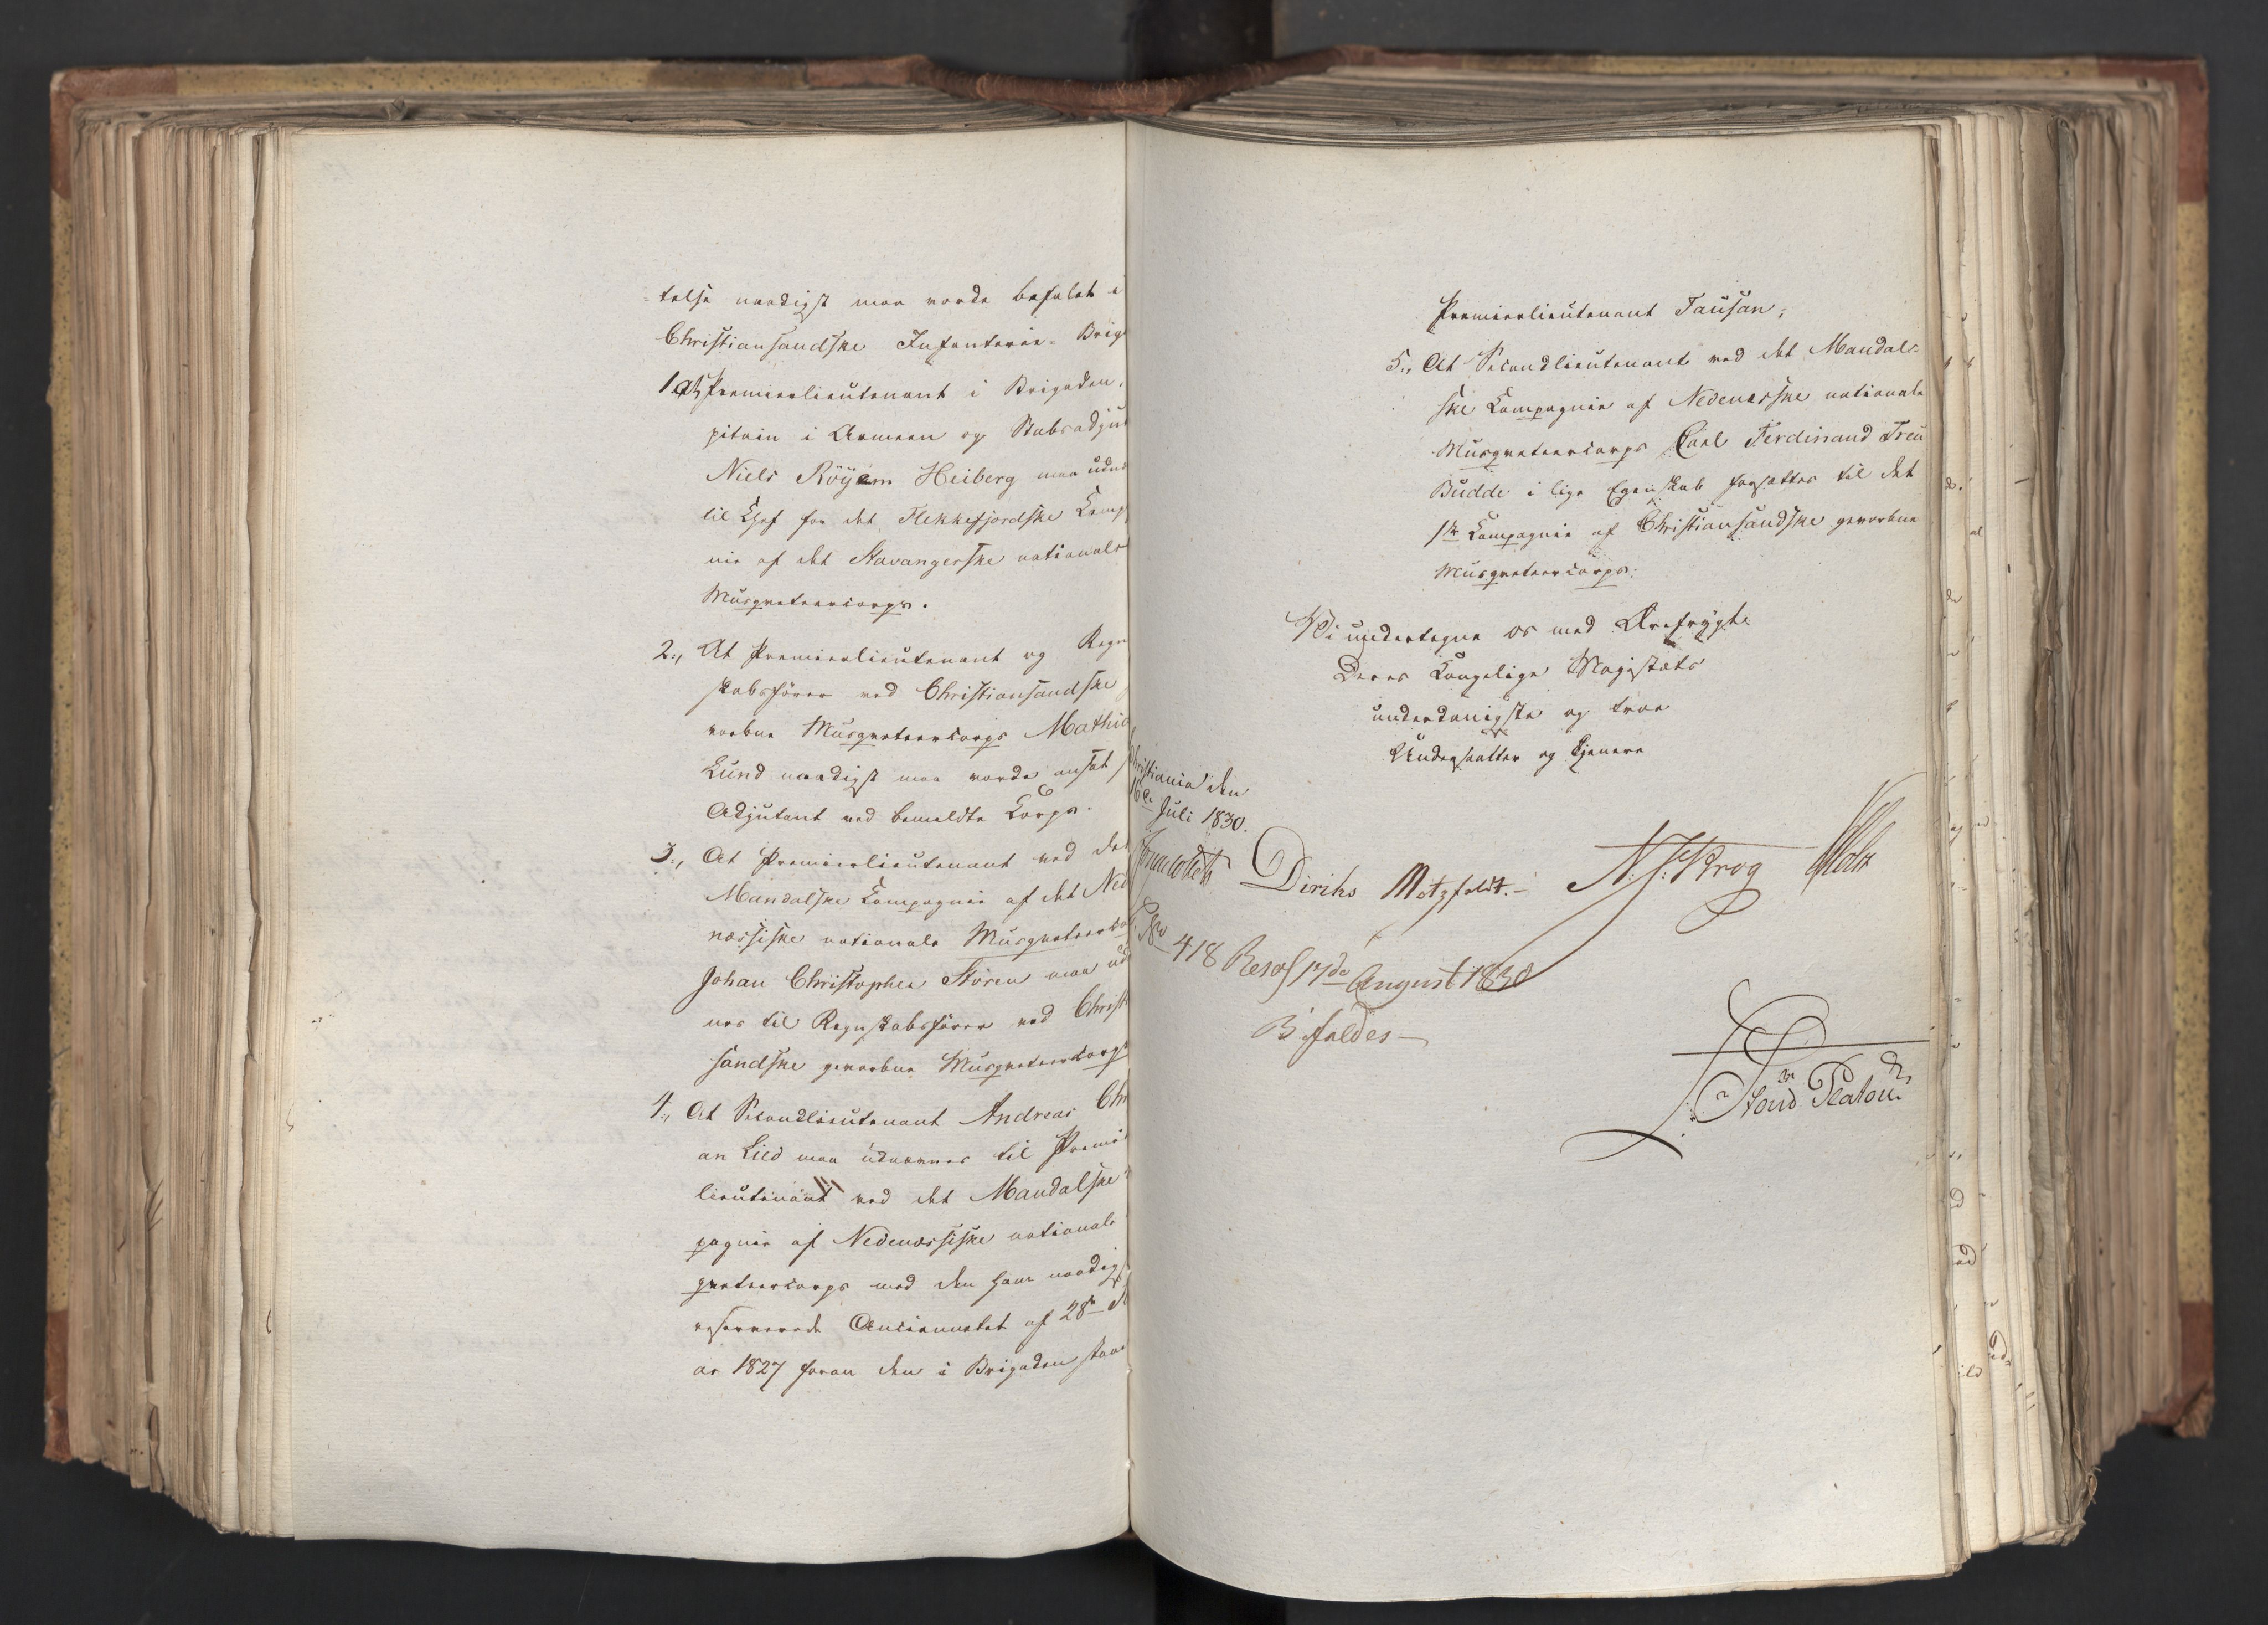 telse naadigst maa vorde befalet i
Christiansandske Infanterie-Brig
1., At Premierlieutenant i Brigaden,
pitain i Armeen og Stabsadjut
Niels Röyem Heiberg maa udnæ
til Chef for det Flekkefjordske Comp
nie af det Stavangerske nationale
Musqueteercorps.
2., At Premierlieutenant og Regn
skabsfører ved Christiansandske
vorbne Musqueteercorps Mathia
Lund naadigst maa vorde ansat
Adjutant ved bemeldte Corps.
3., At Premierlieutenant ved det
Mandalske Compagnie af det Ned
næssiske nationale Musqueteerco
Johan Christopher Stören maa ud
nes til Regnskabsfører ved Christ
sandske gevorbne Musqueteercorps
4., At Secondlieutenant Andreas Chr
an Lied maa udnævnes til Premi
lieutenant ved det Mandalske
pagnie af Nedenæssiske nationale
queteercorps med den ham naadigst
reserverede Anciennetet af 28de
ar 1827 foran den i Brigaden staa
Premierlieutenant Tausan;
5., At Secondlieutenant ved det Mandal-
ske Compagnie af Nedenæsske nationale
Musqueteercorps Carl Ferdinand Treu
Budde i lige Egenskab forsættes til det
1ste Compagnie af Christiansandske gevorbne
Musqueteercorps.
Vi undertegne os med Ærefrygt
Deres Kongelige Majestæts
underdanigste og troe
Undersaatter og Tjenere
Christiania den
16de Juli 1830.
Diriks Motzfeldt. N. J. Krog Holst
No 418 Resol 17de August 1830
Bifaldes
Stoud Platou